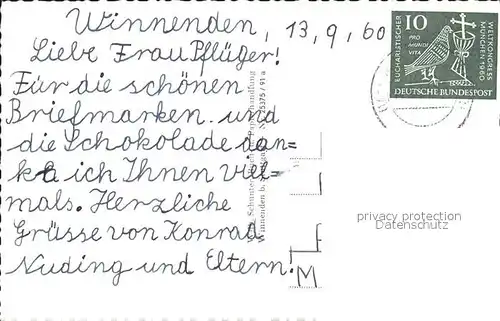 Winnenden, 13,9,60
Liebe Frau Pflüger!
Für die schönen
Briefmarken und
die Schokolade dan=
ke ich Ihnen viel=
mals. Herzliche
Grüsse von Konrad
Nuding und Eltern!
10
EUCHARISTISCHER
WELTKONGRESS
MÜNCHEN 1960
PRO
MUNDI
VITA
DEUTSCHE BUNDESPOST
privacy protection
Datenschutz
Winnenden b.
25375 / 91 a
M